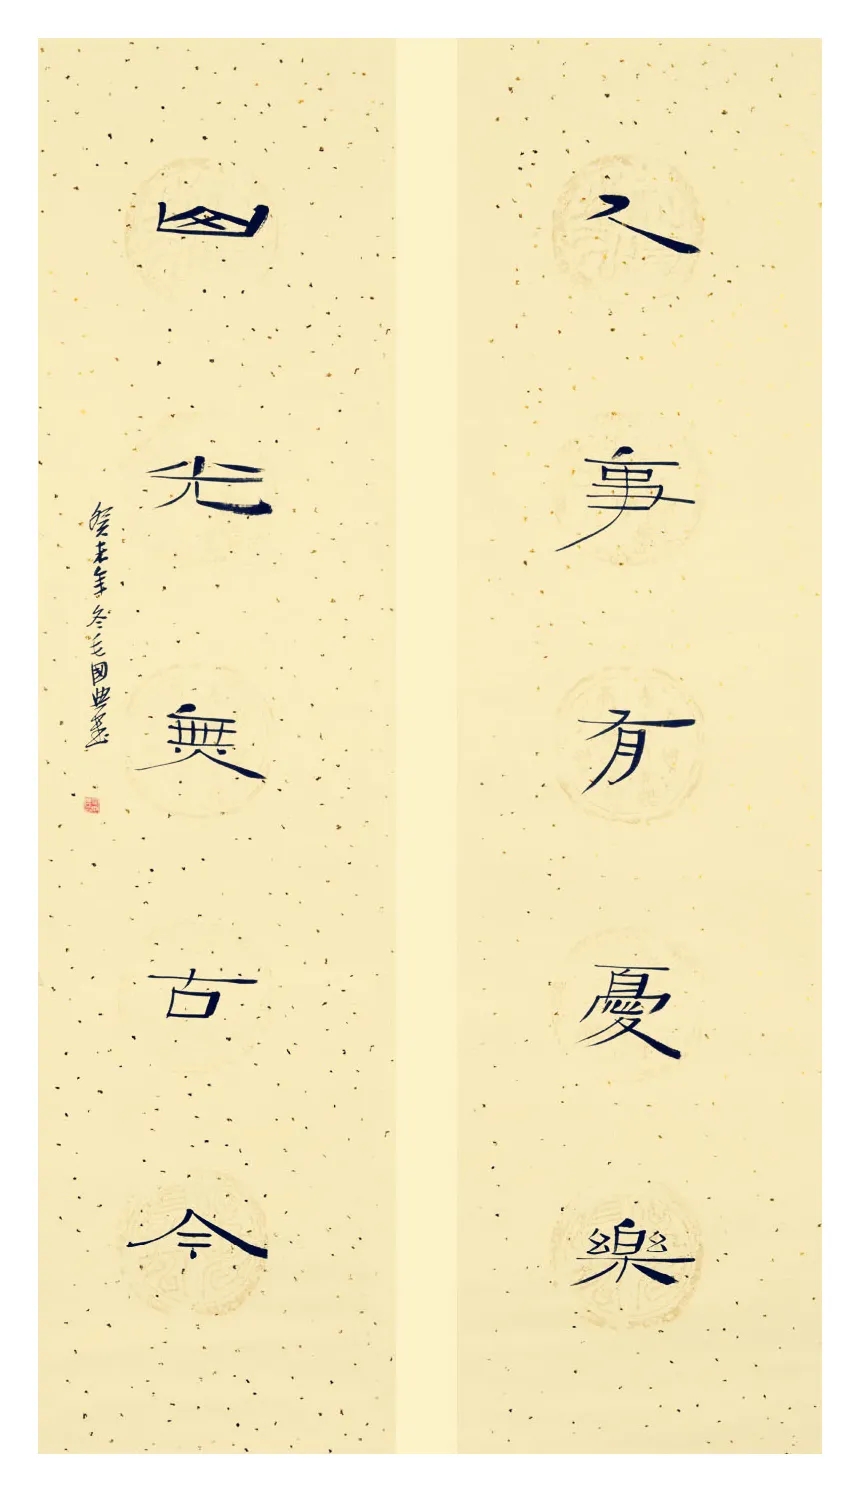 人事有憂樂
山光無古今
癸未年冬毛國典書